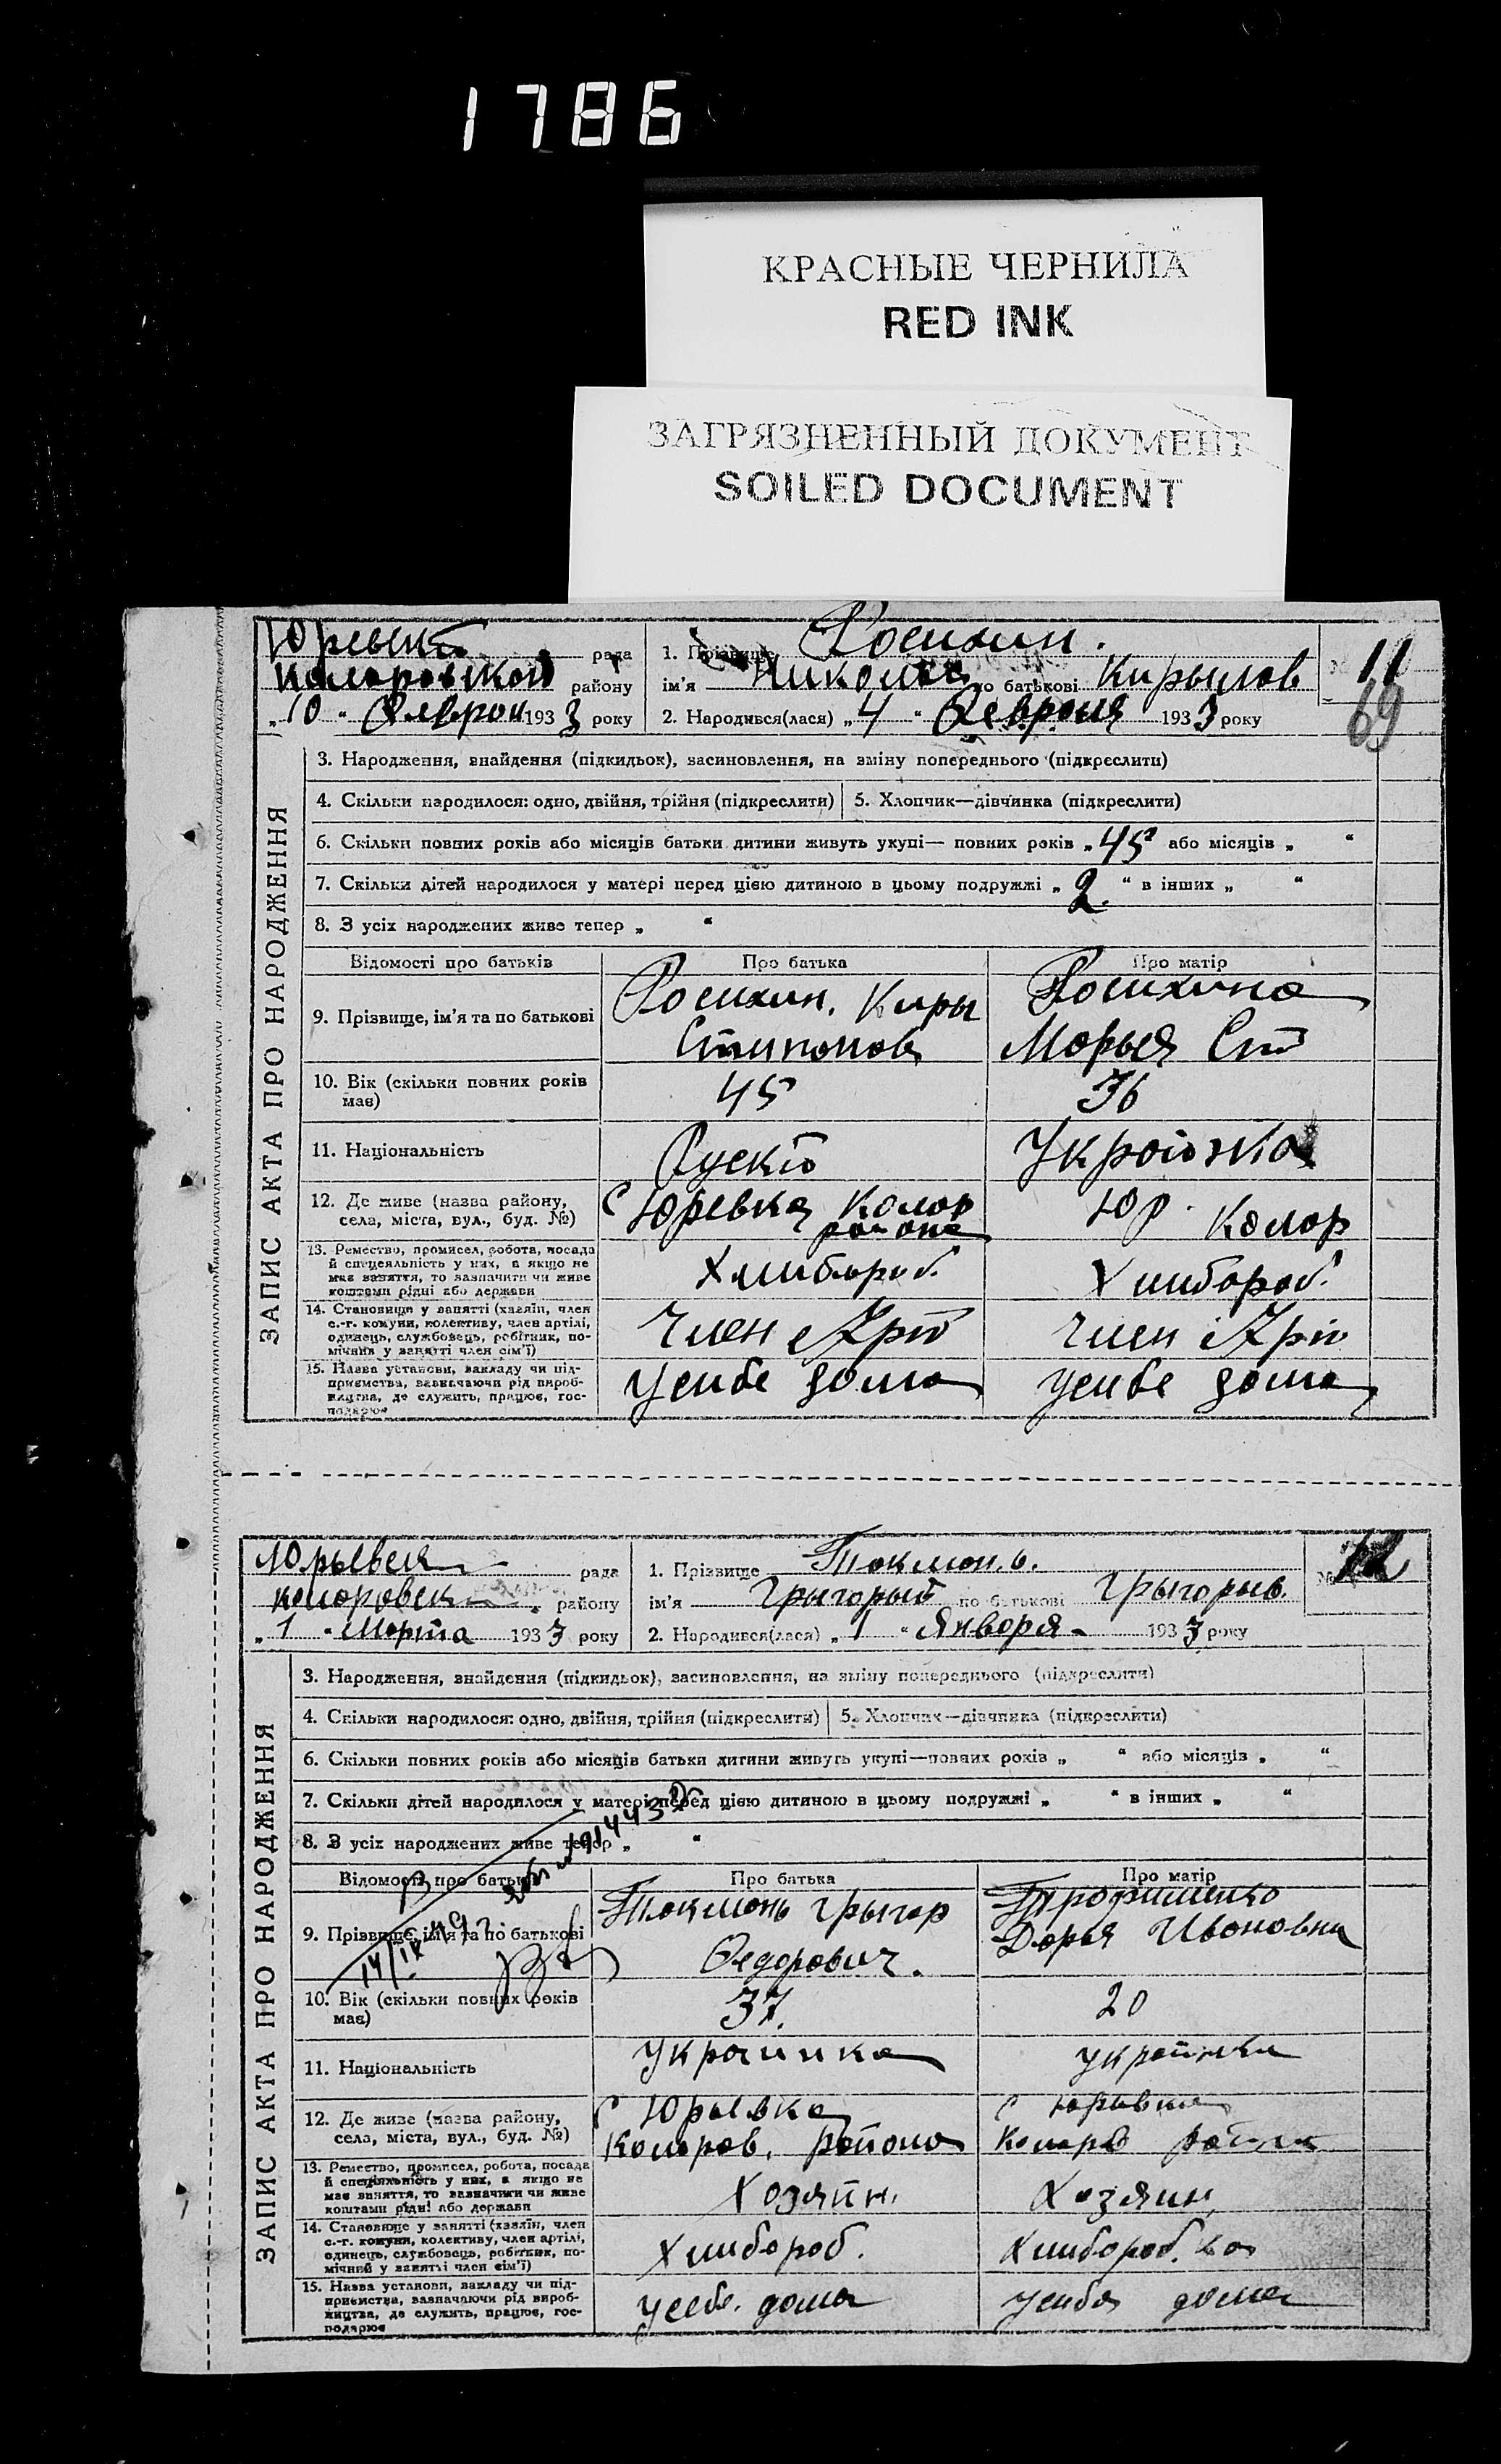 1786
КРАСНЫЕ ЧЕРНИЛА
RED INK
ЗАГРЯЗНЕННЫЙ ДОКУМЕНТ
SOILED DOCUMENT
рада
району
„10“ 1933 року
1. Прізвище
ім'я Николая по батькові Кирылов
2. Народився(лася) „4“ Февроля 1933 року
№ 11
69
ЗАПИС АКТА ПРО НАРОДЖЕННЯ
3. Народження, знайдення (підкидьок), засиновлення, на зміну попереднього (підкреслити)
4. Скільки народилося: одно, двійня, трійня (підкреслити) 5. Хлопчик—дівчинка (підкреслити)
6. Скільки повних років або місяців батьки дитини живуть укупі— повних років „45“ або місяців „ “
7. Скільки дітей народилося у матері перед цією дитиною в цьому подружжі „2.“ в інших „ “
8. З усіх народжених живе тепер „ “
Відомості про батьків Про батька Про матір
9. Прізвище, ім'я та по батькові Киры
Морья Ст
10. Вік (скільки повних років має) 45 36
11. Національність
12. Де живе (назва району, села, міста, вул., буд. №) С Юревка Колор района Юр. Колор
13. Ремество, промисел, робота, посада й спеціяльність у них, а якщо не має заняття, то зазначити чи живе коштами рідні або держави Хлиборoб. Хлибороб.
14. Становище у занятті (хазяїн, член с.-г. комуни, колективу, член артілі, одинець, службовець, робітник, помічний у занятті член сім'ї) Член Член
15. Назва установи, закладу чи підприємства, зазначаючи рід виробництва, де служить, працює, господарює усибе дома усибе дома
рада
району
„1“ Морта 1933 року
1. Прізвище
ім'я Грыгорый по батькові Грыгорыв.
2. Народився(лася) „1“ Января 1933 року
№ 12
ЗАПИС АКТА ПРО НАРОДЖЕННЯ
3. Народження, знайдення (підкидьок), засиновлення, на зміну попереднього (підкреслити)
4. Скільки народилося: одно, двійня, трійня (підкреслити) 5. Хлопчик—дівчинка (підкреслити)
6. Скільки повних років або місяців батьки дитини живуть укупі—повних років „ “ або місяців „ “
7. Скільки дітей народилося у матері перед цією дитиною в цьому подружжі „ “ в інших „ “
8. З усіх народжених живе тепер „ “
Відомості про батьків Про батька Про матір
9. Прізвище, ім'я та по батькові Токмонь Грыгор Трофименко
Федорович. Дорья Ивоновна
10. Вік (скільки повних років має) 37. 20
11. Національність Украинка украинка
12. Де живе (назва району, села, міста, вул., буд. №) С Юрьевка С Юрывка
Колоров. района
13. Ремество, промисел, робота, посада й спеціяльність у них, а якщо не має заняття, то зазначити чи живе коштами рідні або держави Хозяин. Хозяин
14. Становище у занятті (хазяїн, член с.-г. комуни, колективу, член артілі, одинець, службовець, робітник, помічний у занятті член сім'ї) Хлибороб. Хлибороб.
15. Назва установи, закладу чи підприємства, зазначаючи рід виробництва, де служить, працює, господарює усебе. дома усибя дома